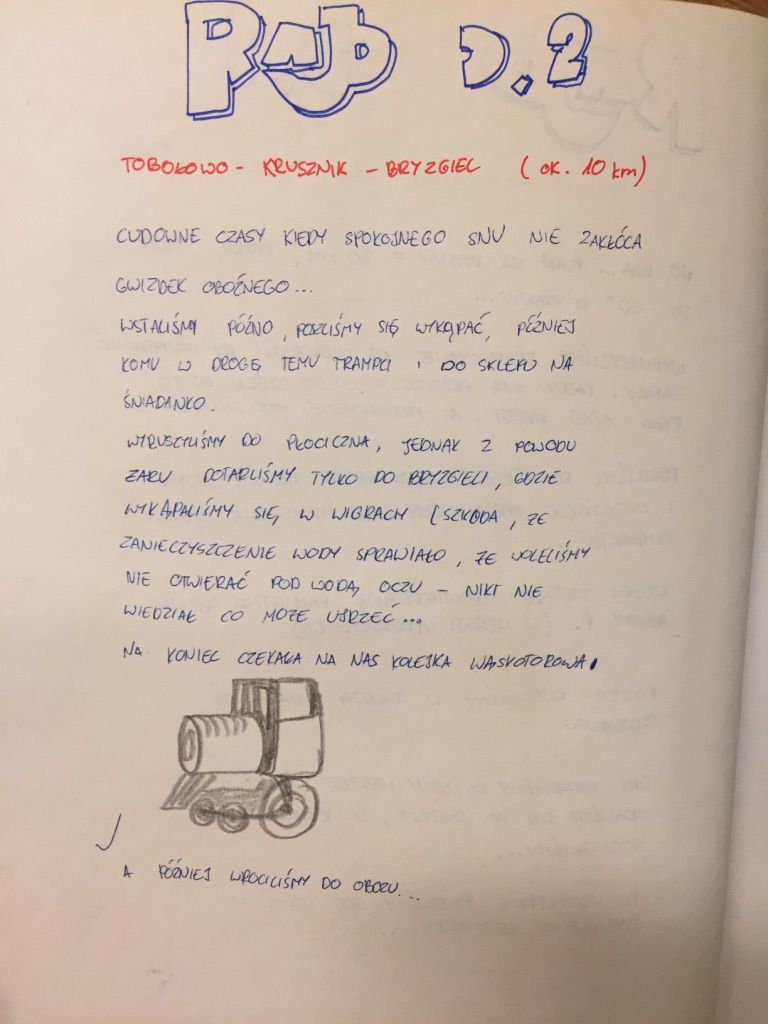 RAJD D.2
TOBOŁOWO - KRUSZNIK - BRYZGIEL (OK. 10 km)
CUDOWNE CZASY KIEDY SPOKOJNEGO SNU NIE ZAKŁÓCA
GWIZDEK OBOŹNEGO...
WSTALIŚMY PÓŹNO, POSZLIŚMY SIĘ WYKĄPAĆ, PÓŹNIEJ
KOMU W DROGĘ TEMU TRAMPKI I DO SKLEPU NA
ŚNIADANKO.
WYRUSZYLIŚMY DO PŁOCICZNA, JEDNAK Z POWODU
ŻARU DOTARLIŚMY TYLKO DO BRYZGIELI, GDZIE
WYKĄPALIŚMY SIĘ, W WIGRACH (SZKODA, ŻE
ZANIECZYSZCZENIE WODY SPRAWIAŁO, ŻE WOLELIŚMY
NIE OTWIERAĆ POD WODĄ OCZU - NIKT NIE
WIEDZIAŁ CO MOŻE UJRZEĆ...
NA KONIEC CZEKAŁA NA NAS KOLEJKA WĄSKOTOROWA.
A PÓŹNIEJ WRÓCILIŚMY DO OBOZU...